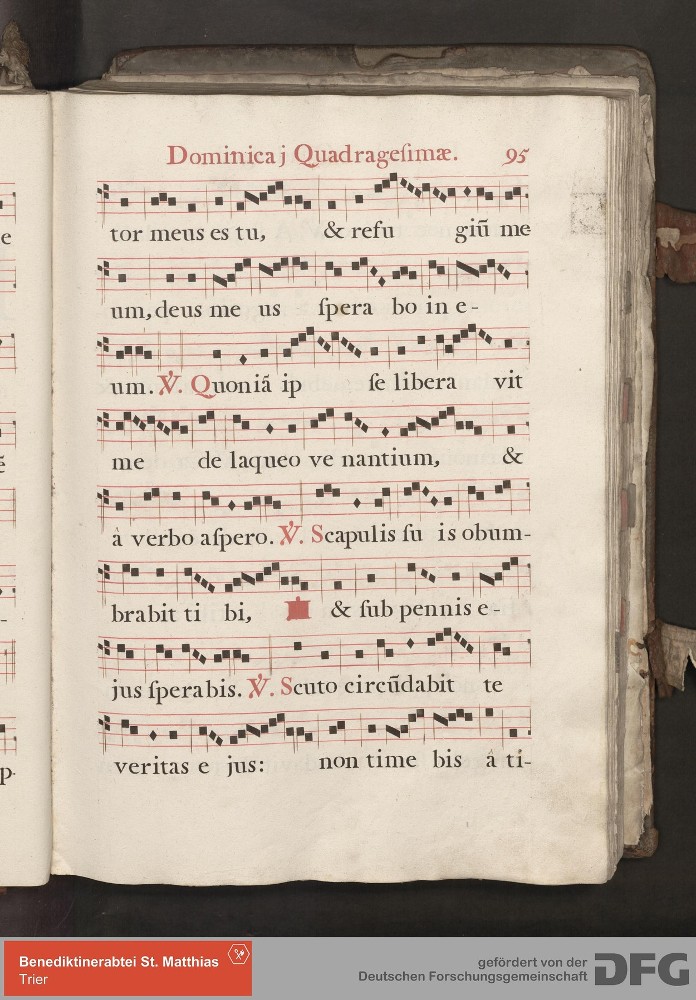 Dominica j Quadragesimæ. 95
tor meus es tu, & refu giũ me
um, deus me us ſpera bo in e-
um. ℣. Quoniã ip ſe libera vit
me de laqueo ve nantium, &
â verbo aſpero. ℣. Scapulis ſu is obum-
brabit ti bi, & ſub pennis e-
jus ſperabis. ℣. Scuto circũdabit te
veritas e jus: non time bis â ti-
e
ẽ
-
p-
Benediktinerabtei St. Matthias
Trier
gefördert von der
Deutschen Forschungsgemeinschaft
DFG